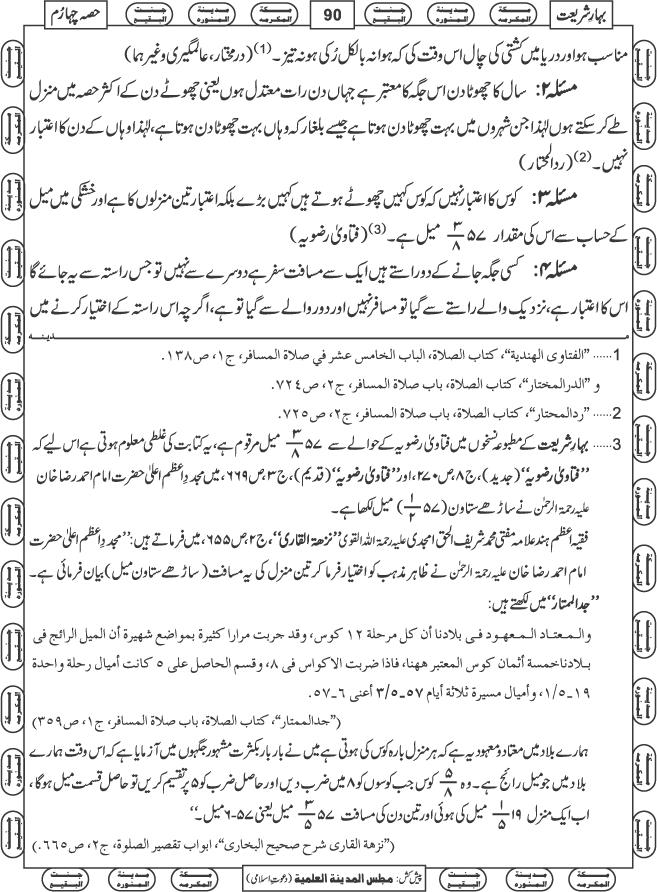 بہارِشریعت
مكة المكرمه
مدينة المنوره
جنت البقيع
90
مكة المكرمه
مدينة المنوره
جنت البقيع
حصہ چہارم
مناسب ہو اور دریا میں کشتی کی چال اس وقت کی کہ ہوا نہ بالکل رُکی ہو نہ تیز۔(1) (درمختار، عالمگیری وغیرہما)
مسئلہ ۲: سال کا چھوٹا دن اس جگہ کا معتبر ہے جہاں دن رات معتدل ہوں یعنی چھوٹے دن کے اکثر حصہ میں منزل
طے کر سکتے ہوں لہٰذا جن شہروں میں بہت چھوٹا دن ہوتا ہے جیسے بلغار کہ وہاں بہت چھوٹا دن ہوتا ہے، لہٰذا وہاں کے دن کا اعتبار
نہیں۔(2) (ردالمحتار)
مسئلہ ۳: کوس کا اعتبار نہیں کہ کوس کہیں چھوٹے ہوتے ہیں کہیں بڑے بلکہ اعتبار تین منزلوں کا ہے اور خشکی میں میل
کے حساب سے اس کی مقدار ۵۷ ۳/۸ میل ہے۔(3) (فتاویٰ رضویہ)
مسئلہ ۴: کسی جگہ جانے کے دو راستے ہیں ایک سے مسافت سفر ہے دوسرے سے نہیں تو جس راستہ سے یہ جائے گا
اس کا اعتبار ہے، نزدیک والے راستے سے گیا تو مسافر نہیں اور دور والے سے گیا تو ہے، اگرچہ اس راستہ کے اختیار کرنے میں
مدينه
1...... "الفتاوى الهندية"، كتاب الصلاة، الباب الخامس عشر في صلاة المسافر، ج١، ص١٣٨.
و "الدرالمختار"، كتاب الصلاة، باب صلاة المسافر، ج٢، ص٧٢٤.
2...... "ردالمحتار"، كتاب الصلاة، باب صلاة المسافر، ج٢، ص٧٢٥.
3...... بہارِ شریعت کے مطبوعہ نسخوں میں فتاویٰ رضویہ کے حوالے سے ۵۷ ۳/۸ میل مرقوم ہے، یہ کتابت کی غلطی معلوم ہوتی ہے اس لیے کہ
"فتاویٰ رضویہ" (جدید)، ج۸، ص۲۷۰، اور "فتاویٰ رضویہ" (قدیم)، ج۳، ص۶۶۹، میں مجددِ اعظم اعلیٰ حضرت امام احمد رضا خان
علیہ رحمۃ الرحمٰن نے ساڑھے ستاون (۵۷ ۱/۲) میل لکھا ہے۔
فقیہِ اعظم ہند علامہ مفتی محمد شریف الحق امجدی علیہ رحمۃ اللہ القوی "نزھۃ القاری"، ج۲، ص۶۵۵، میں فرماتے ہیں: "مجددِ اعظم اعلیٰ حضرت
امام احمد رضا خان علیہ رحمۃ الرحمٰن نے ظاہر مذہب کو اختیار فرما کر تین منزل کی یہ مسافت (ساڑھے ستاون میل) بیان فرمائی ہے۔
"جدالممتار" میں لکھتے ہیں:
والمعتاد المعهود فى بلادنا أن كل مرحلة ١٢ كوس، وقد جربت مرارا كثيرة بمواضع شهيرة أن الميل الرائج فى
بلادنا خمسة أثمان كوس المعتبر ههنا، فاذا ضربت الاكواس فى ٨، وقسم الحاصل على ٥ كانت أميال رحلة واحدة
١٩-١/٥، وأميال مسيرة ثلاثة أيام ٥٧-٣/٥ أعنى ٦-٥٧.
("جدالممتار"، كتاب الصلاة، باب صلاة المسافر، ج١، ص٣٥٩)
ہمارے بلاد میں معتاد و معہود یہ ہے کہ ہر منزل بارہ کوس کی ہوتی ہے میں نے بار بار بکثرت مشہور جگہوں میں آزمایا ہے کہ اس وقت ہمارے
بلاد میں جو میل رائج ہے۔ وہ ۵/۸ کوس جب کوسوں کو ۸ میں ضرب دیں اور حاصل ضرب کو ۵ پر تقسیم کریں تو حاصل قسمت میل ہوگا،
اب ایک منزل ۱۹ ۱/۵ میل کی ہوئی اور تین دن کی مسافت ۵۷ ۳/۵ میل یعنی ۵۷-۶ میل۔"
("نزهة القارى شرح صحيح البخارى"، ابواب تقصير الصلوة، ج٢، ص٦٦٥.)
مكة المكرمه
مدينة المنوره
جنت البقيع
پیش کش: مجلس المدينة العلمية (دعوتِ اسلامی)
مكة المكرمه
مدينة المنوره
جنت البقيع